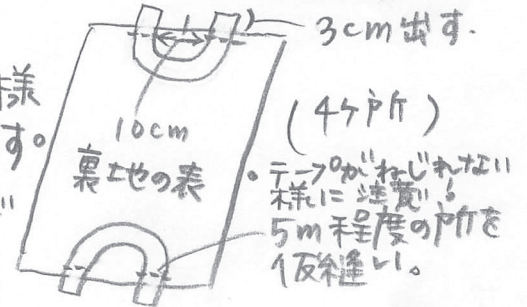 3cm出す.
様
す。
(4ケ所)
10cm
裏地の表
・テープがねじれない
様いに注意!
5m程度の所を
仮縫い。